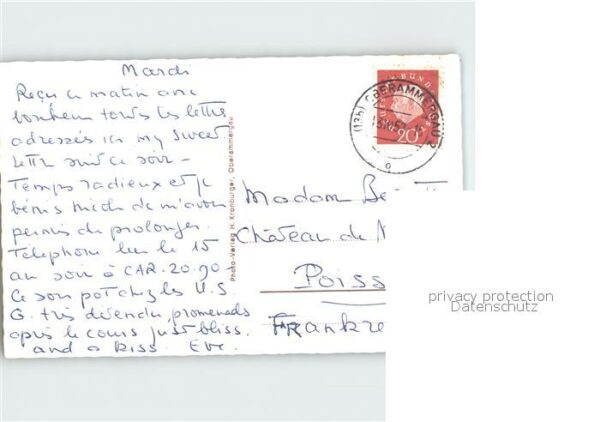 Mardi
Reçu ce matin avec
bonheur toutes tes lettres
adressées ici my sweet
lettre suit ce soir -
Temps radieux et je
bénis Mich de m'avoir
permis de prolonger.
Téléphone lui le 15
au soir à CAR. 20.90
Ce soir pot chez les U.S.
G. très détendu, promenades
après le cours just bliss.
and a kiss Eve.
Photo-Verlag H. Kronburger, Oberammergau
OBERAMMERGAU 2
20
Madame
Château de
Poiss
Frankre
privacy protection
Datenschutz